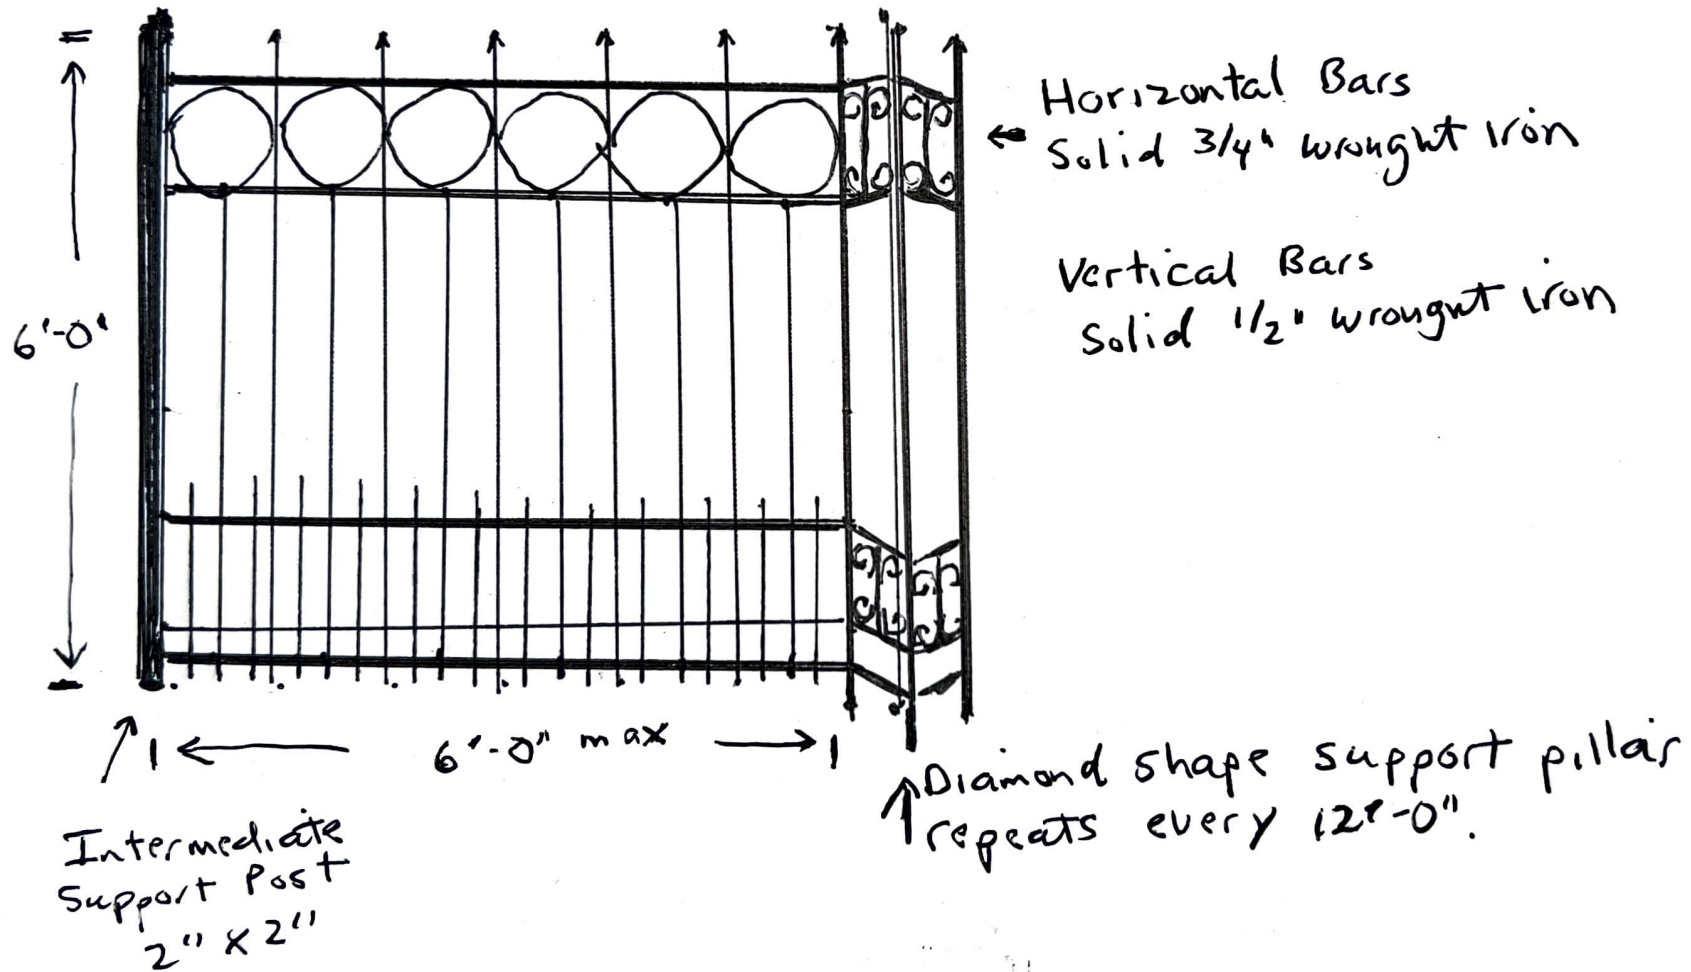 Horizontal Bars
Solid 3/4" wrought iron
Vertical Bars
Solid 1/2" wrought iron
6'-0"
6'-0" max
Diamond shape support pillar
repeats every 12'-0".
Intermediate
Support Post
2" x 2"